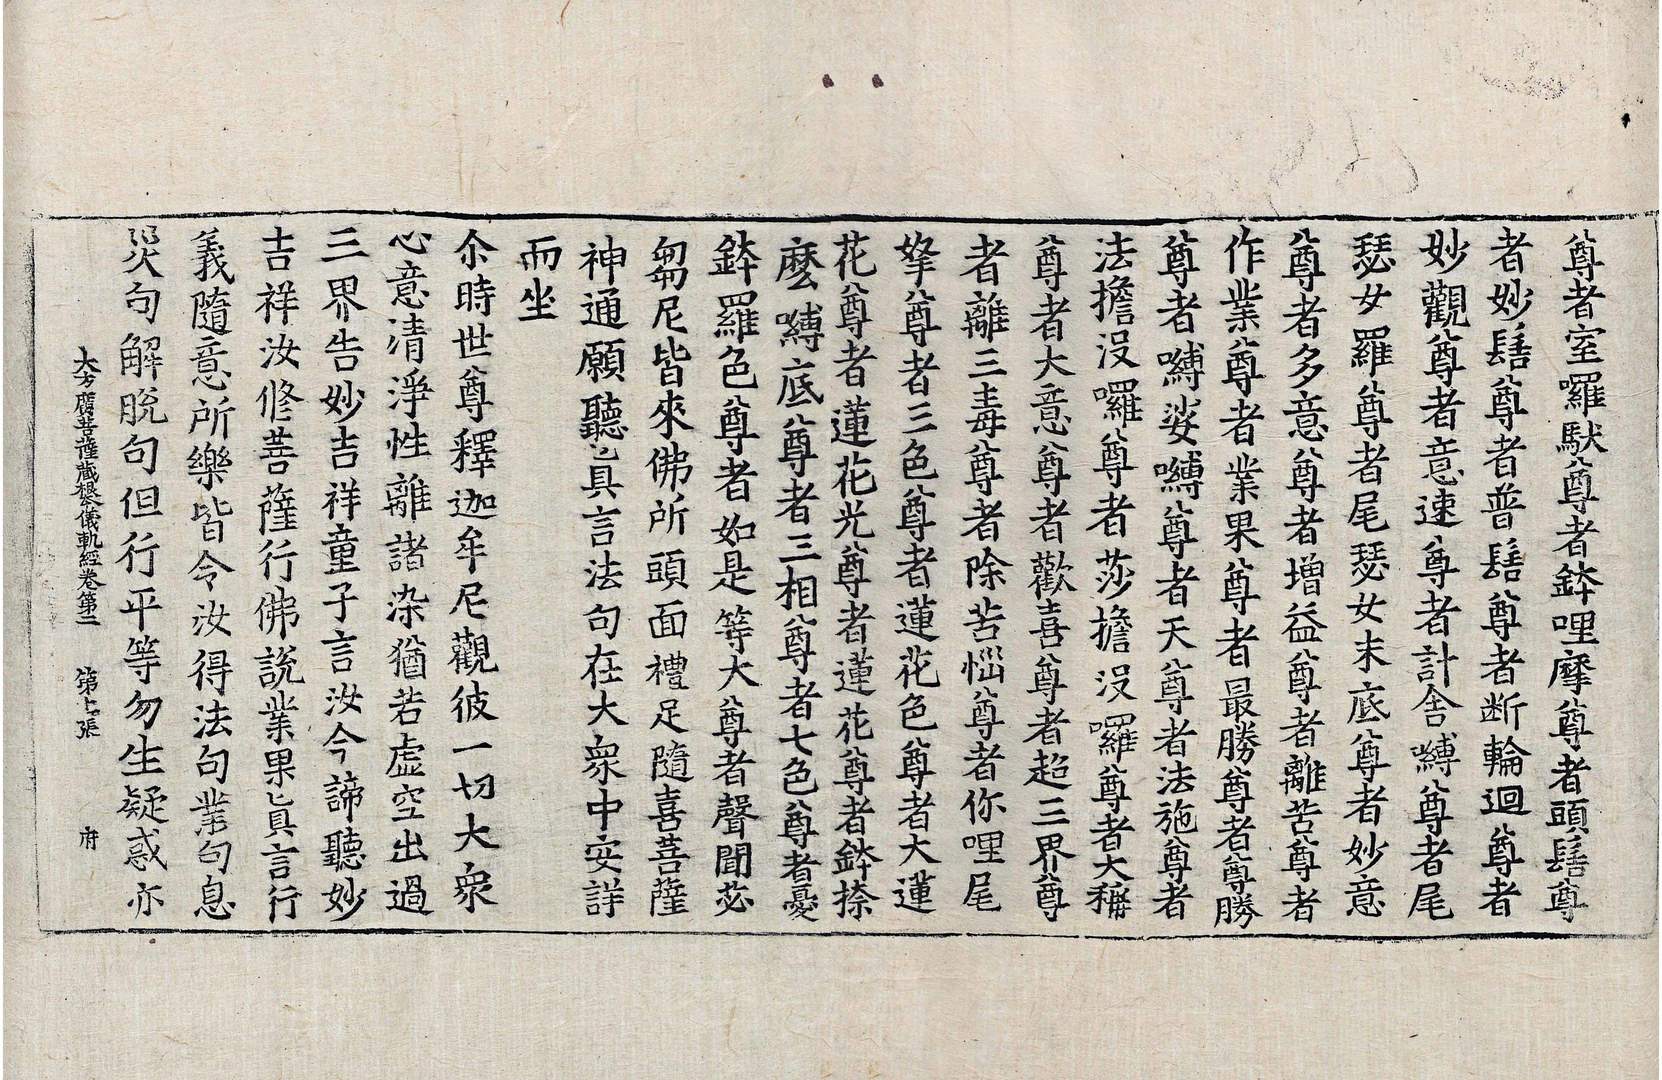 尊者室囉馱尊者鉢哩摩尊者頭髻尊
者妙髻尊者普髻尊者断輪迴尊者
妙觀尊者意速尊者計舍嚩尊者尾
瑟女羅尊者尾瑟女末底尊者妙意
尊者多意尊者增益尊者離苦尊者
作業尊者業果尊者最勝尊者尊勝
尊者嚩娑嚩尊者天尊者法施尊者
法擔没囉尊者莎擔没囉尊者大稱
尊者大意尊者歡喜尊者超三界尊
者離三毒尊者除苦惱尊者你哩尾
拏尊者三色尊者蓮花色尊者大蓮
花尊者蓮花光尊者蓮花尊者鉢捺
麽嚩底尊者三相尊者七色尊者憂
鉢羅色尊者如是等大尊者聲聞苾
芻尼皆來佛所頭面禮足隨喜菩薩
神通願聽真言法句在大衆中安詳
而坐
尒時世尊釋迦牟尼觀彼一切大衆
心意清淨性離諸染猶若虛空出過
三界告妙吉祥童子言汝今諦聽妙
吉祥汝修菩薩行佛說業果真言行
義隨意所樂皆令汝得法句業句息
災句解脫句但行平等勿生疑惑亦
大方廣菩薩藏根本儀軌經卷第二 第七張 府